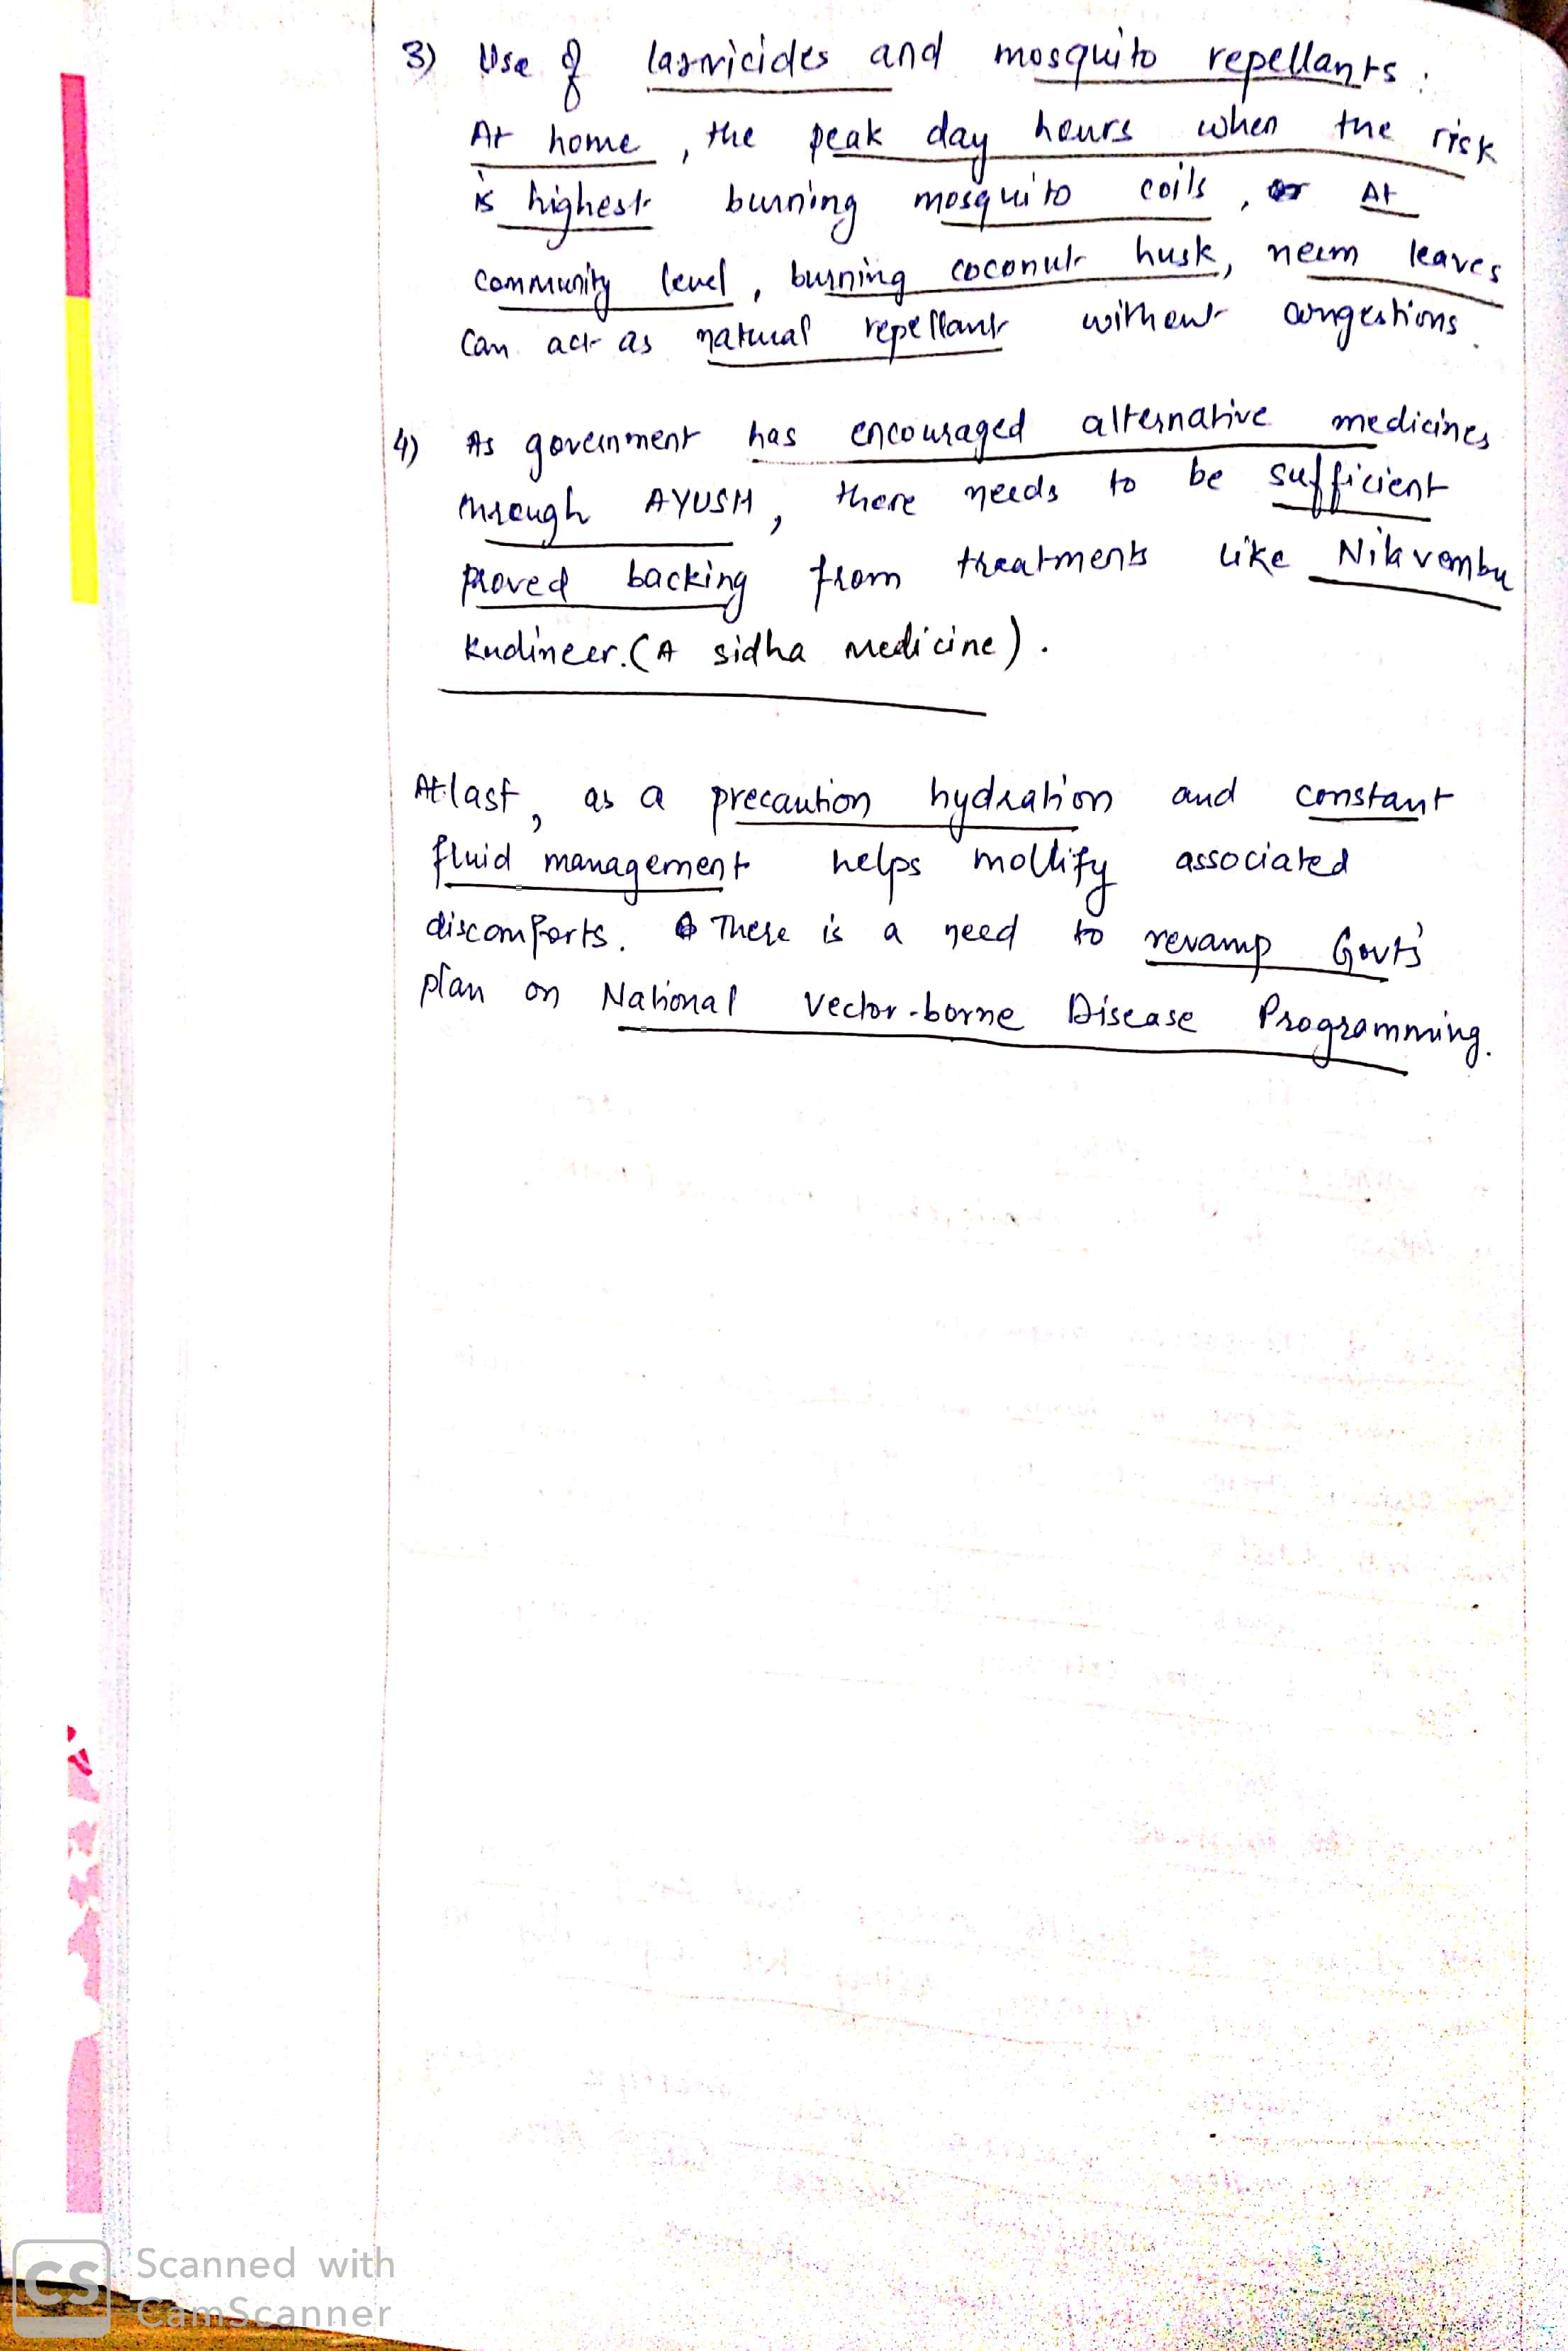 3) Use of larvicides and mosquito repellants :
At home, the peak day hours when the risk
is highest burning mosquito coils, At
community level, burning coconut husk, neem leaves
can act as natural repellant without congestions.
4) As government has encouraged alternative medicines
through AYUSH, there needs to be sufficient
proved backing from treatments like Nilavembu
Kudineer. (A sidha medicine).
Atlast, as a precaution hydration and constant
fluid management helps mollify associated
discomforts. There is a need to revamp Govt's
plan on National Vector-borne Disease Programming.
CS Scanned with
CamScanner